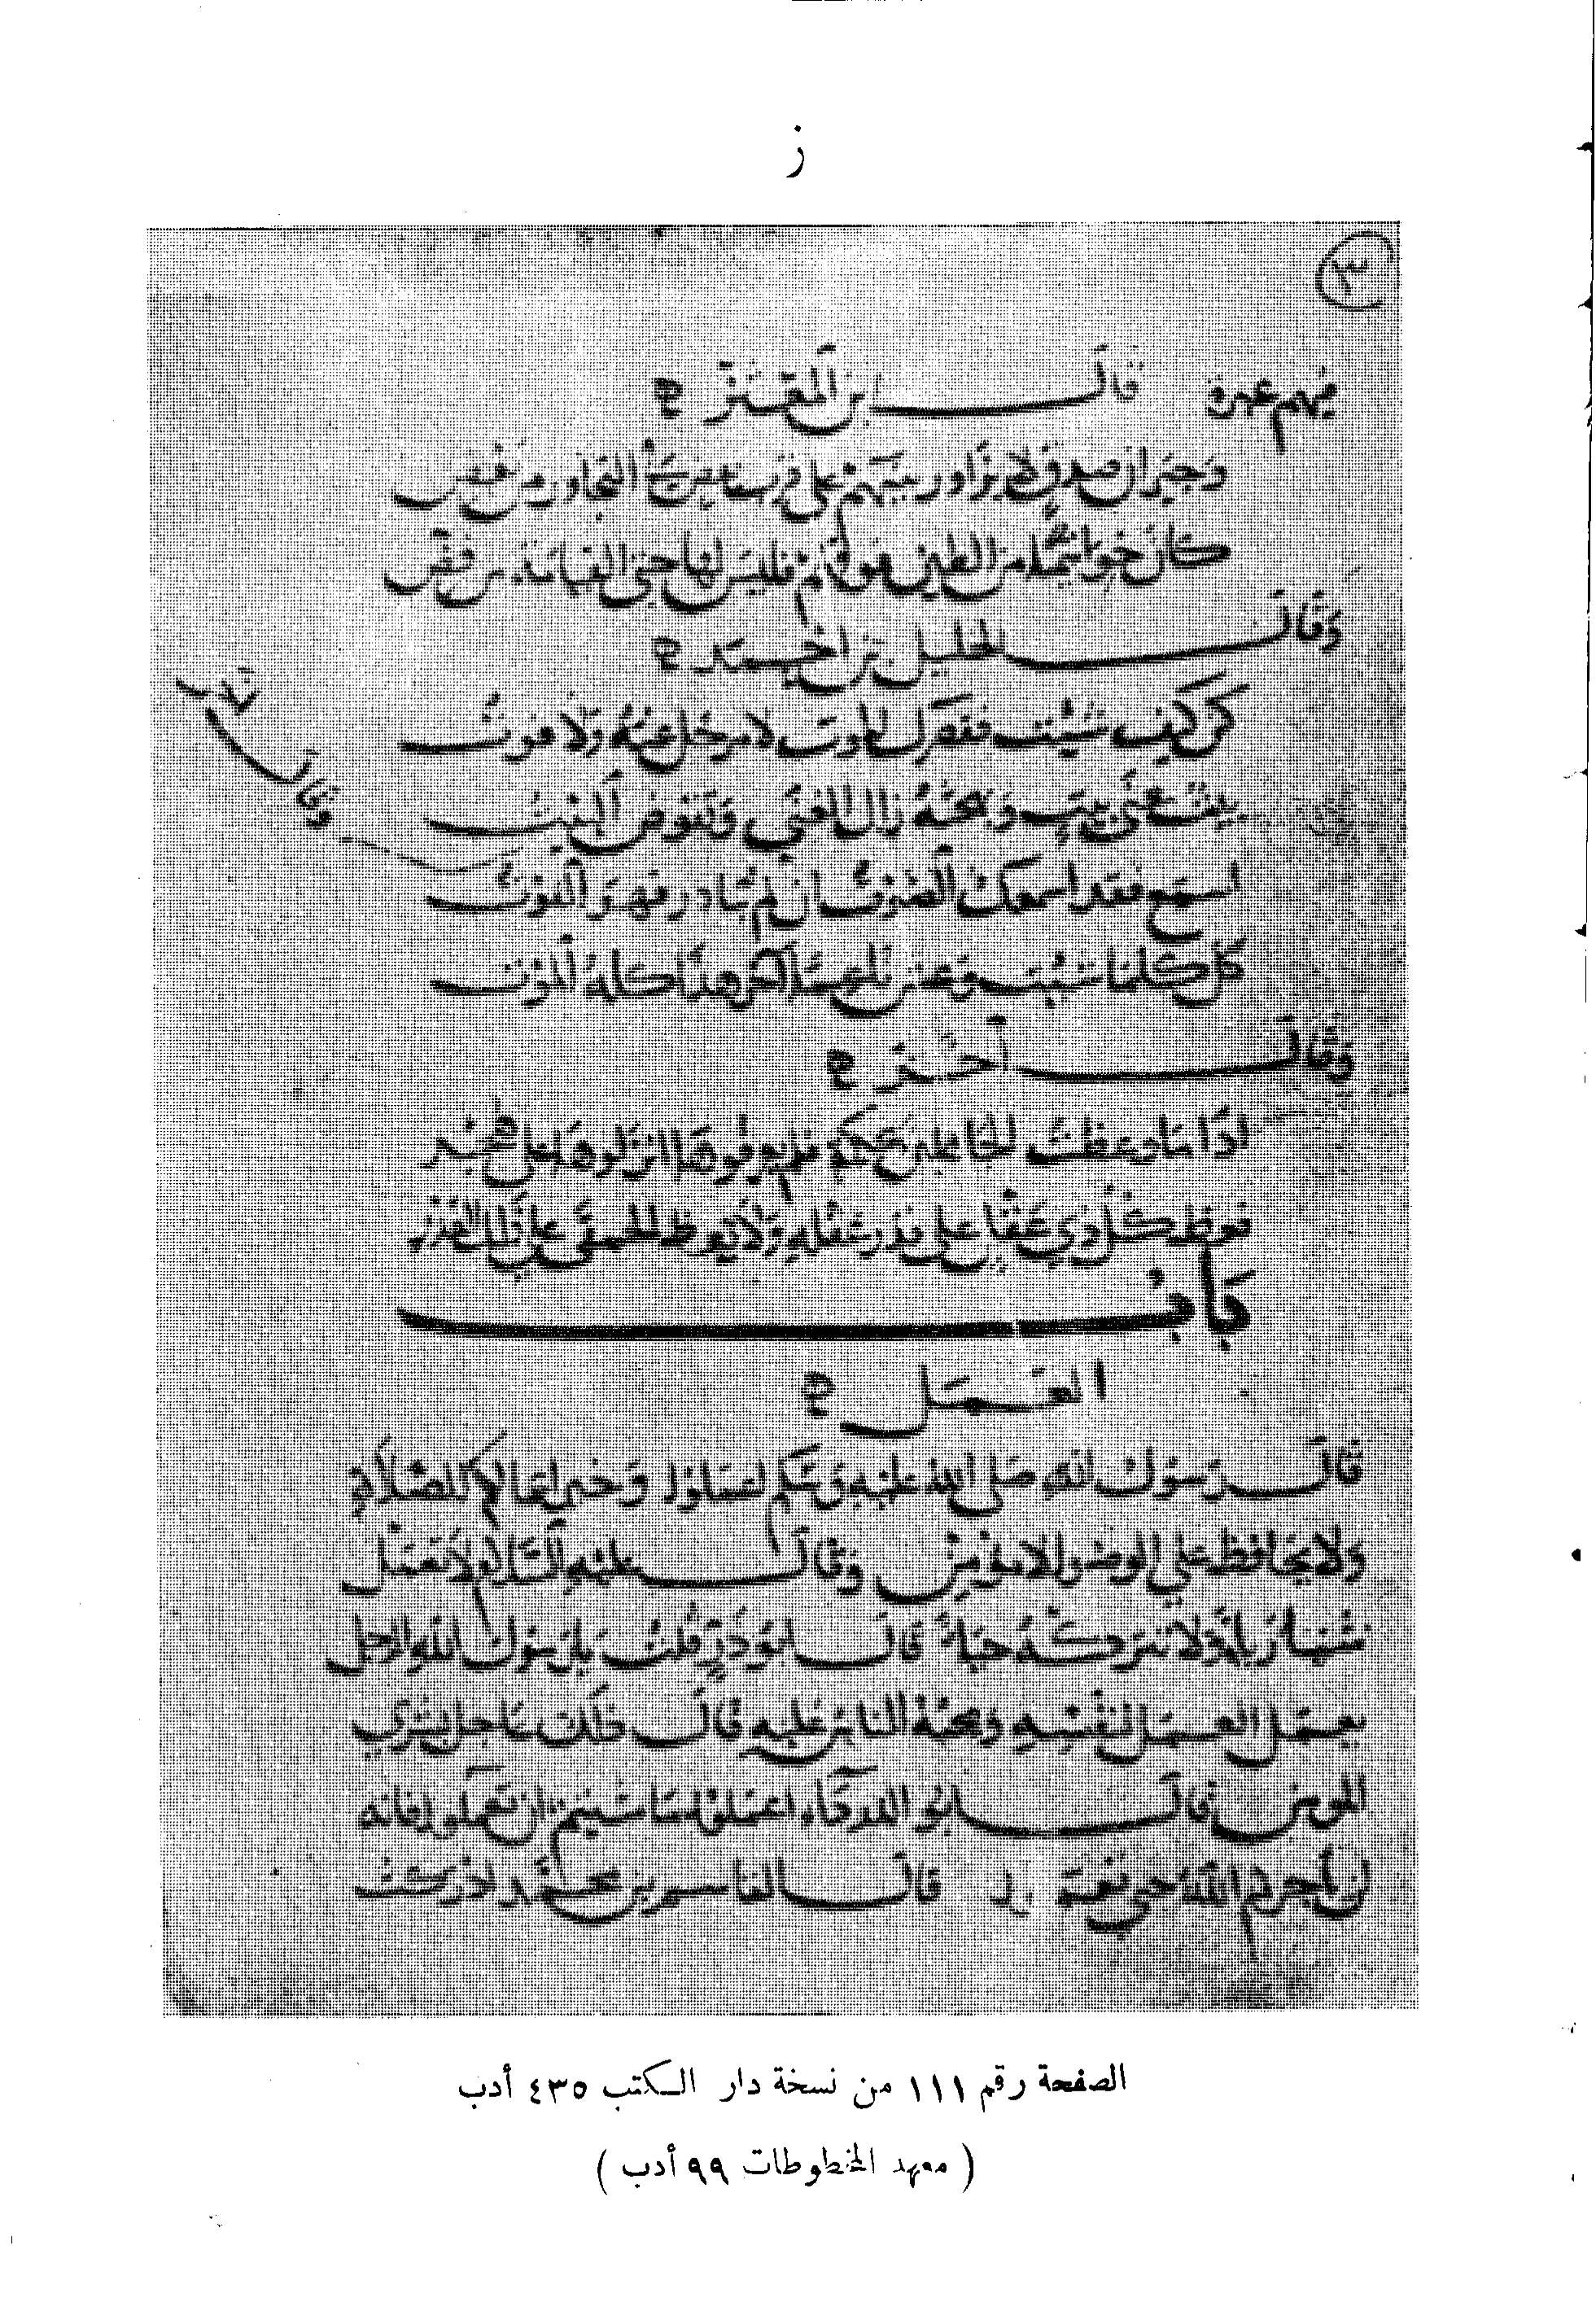 ز
٣
فيهم عبرة قال ابن المعتز
وجيران صدق لا تزاور بينهم على قرب بعض في التجاور من بعض
كأن خواتيما من الطين فوقهم فليس لها حتى القيامة من فض
وقال الخليل بن احمد
كن كيف شئت فقصرك الموت لا مزحل عنه ولا فوت
بينا غنى بيت وبهجته زال الغنى وتقوض البيت
وقال آخر
اسمع فقد اسمعك الصوت ان لم تبادر فهو الفوت
كل كلما شئت وعش ناعما آخر هذا كله الموت
وقال آخر
اذا ما وعظت الجاهلين بحكمة فلم يعرفوها انزلوها على
فعظ كل ذي عقل على قدر عقله ولا تعظ الحمقى على ذلك القدر
باب
العمل
قال رسول الله صلى الله عليه وسلم اعملوا وخير اعمالكم الصلاة
ولا يحافظ على الوضوء الا مؤمن وقال عليه السلام لا تعمل
شيئا رياء ولا تتركه حياء قال ابو ذر قلت يا رسول الله الرجل
يعمل العمل لنفسه ومحبة الناس عليه قال ذلك عاجل بشرى
المؤمن قال ابو الدرداء اعملوا ما شئتم ان تعملوا فانه
لن يأجركم الله حتى قال القاسم بن محمد ادركت
الصفحة رقم ١١١ من نسخة دار الكتب ٤٣٥ أدب
( معهد المخطوطات ٩٩ أدب )